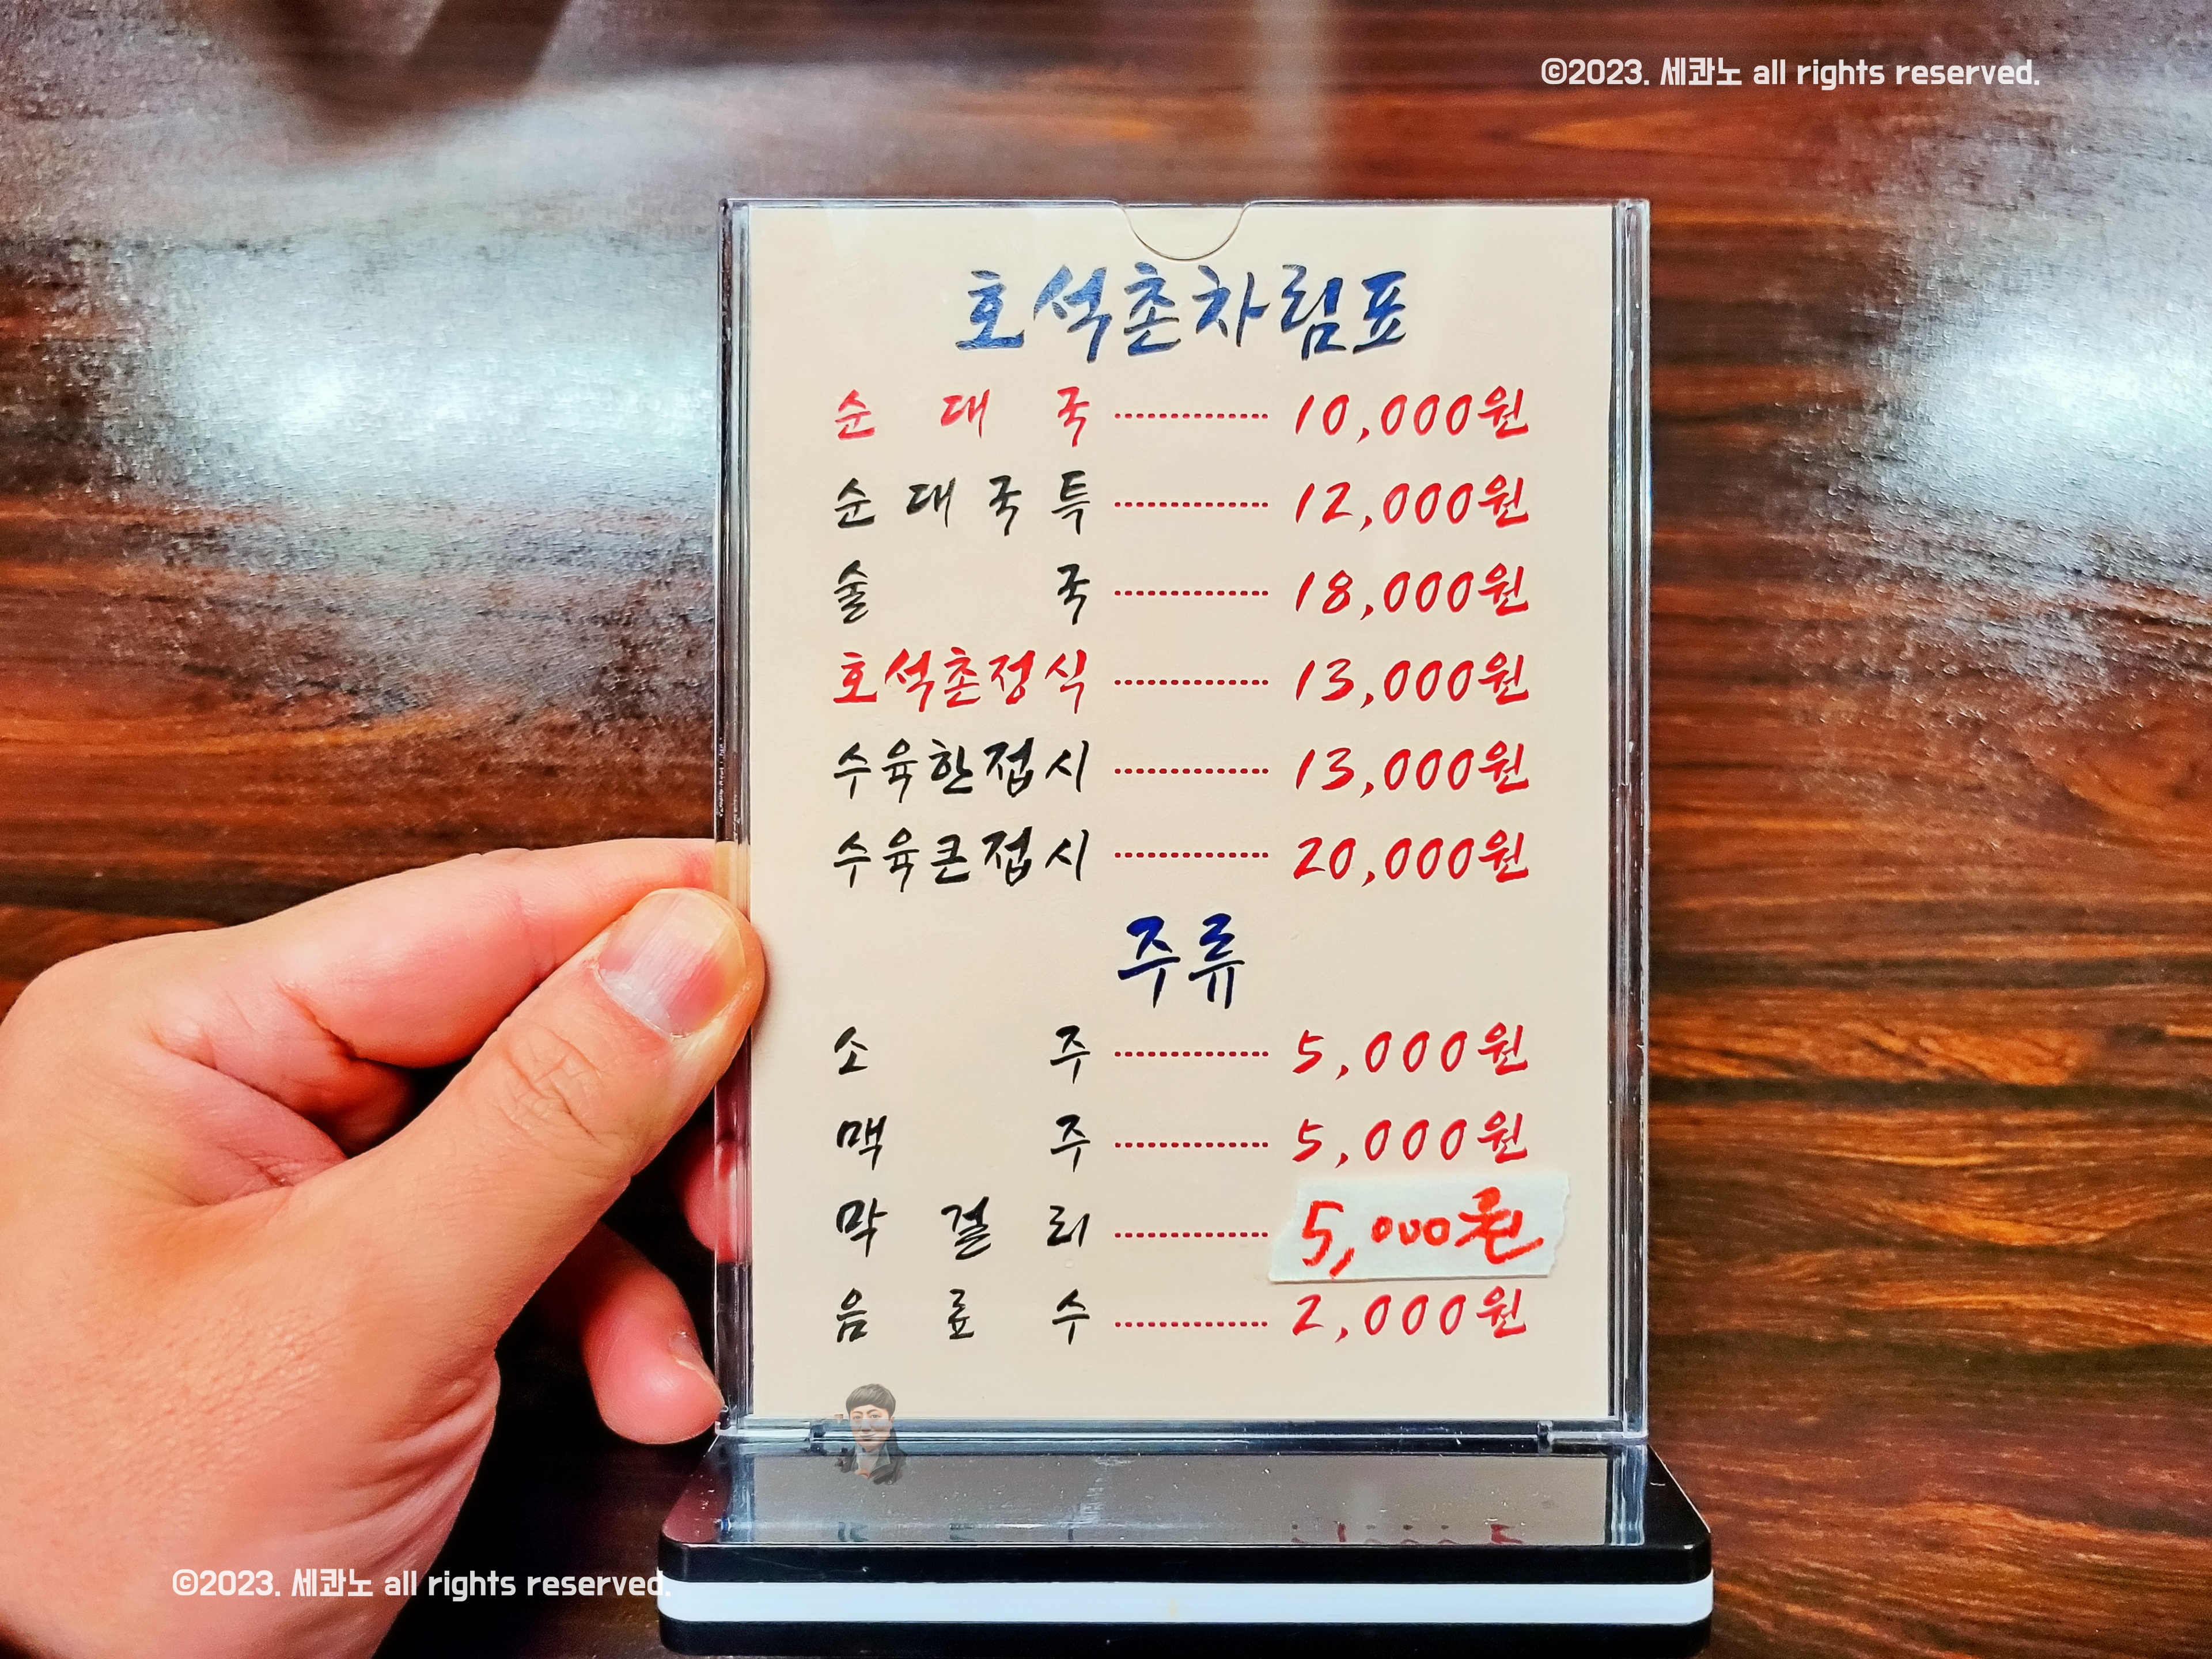 ©2023. 세콴노 all rights reserved.
호석촌차림표
순대국 ---------- 10,000원
순대국특 ---------- 12,000원
술국 ---------- 18,000원
호석촌정식 ---------- 13,000원
수육한접시 ---------- 13,000원
수육큰접시 ---------- 20,000원
주류
소주 ---------- 5,000원
맥주 ---------- 5,000원
막걸리 ---------- 5,000원
음료수 ---------- 2,000원
©2023. 세콴노 all rights reserved.